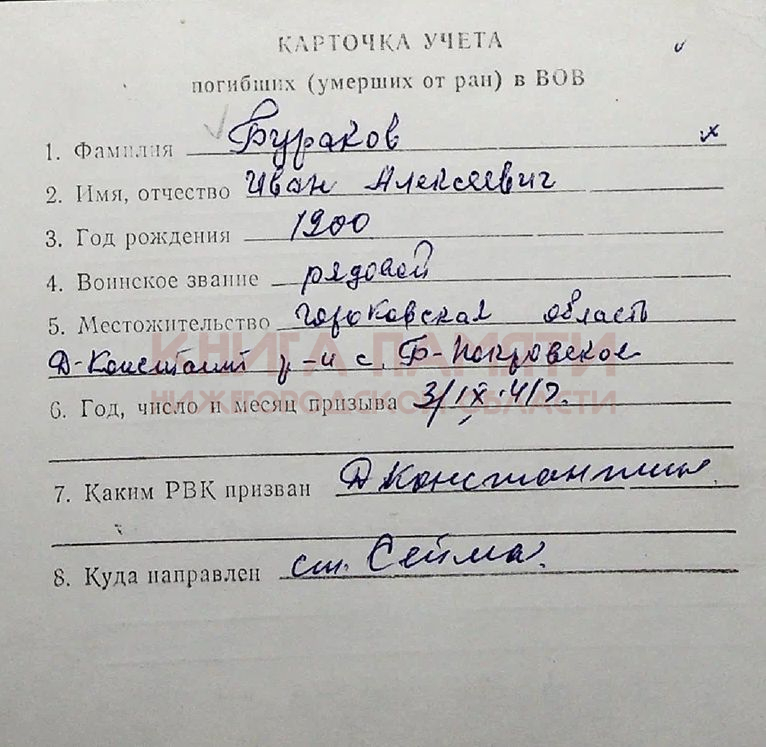 КАРТОЧКА УЧЕТА
погибших (умерших от ран) в ВОВ
1. Фамилия Бураков
2. Имя, отчество Иван Алексеевич
3. Год рождения 1900
4. Воинское звание рядовой
5. Местожительство Горьковская область
Д-Констант р-н с. Б-Покровское
КНИГА ПАМЯТИ
НИЖЕГОРОДСКОЙ ОБЛАСТИ
6. Год, число и месяц призыва 3/IX-41г.
7. Каким РВК призван Д Константин
8. Куда направлен ст. Сейма.